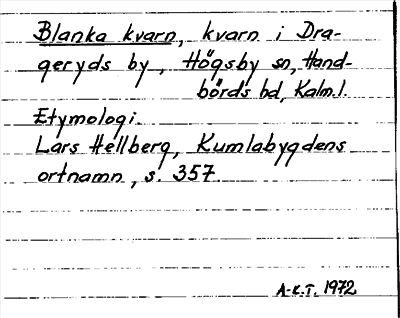 Blanka kvarn, kvarn i Dra-
geryds by, Högsby sn, Hand-
börds hd, Kalm.l.
Etymologi.
Lars Hellberg, Kumlabygdens
ortnamn, s. 357
A-K.T. 1972